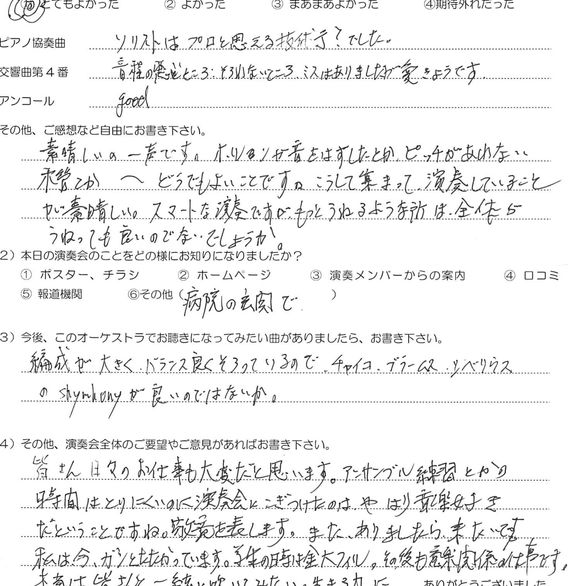 ① とてもよかった ② よかった ③ まあまあよかった ④期待外れだった
ピアノ協奏曲 ソリストはプロと思える技術!?でした。
交響曲第4番 音程の 微妙 ところ、そろわないところ、ミスはありましたが愛きょうです。
アンコール good
その他、ご感想など自由にお書き下さい。
素晴しいの一声です。ホルンが音をはずしたとか、ピッチがあわない
木管とか へ どうでもよいことです。こうして集まって、演奏していること
が素晴しい。スマートな演奏ですが、もっとうねるような所は、全体も
うねっても良いのでないでしょうか。
2）本日の演奏会のことをどの様にお知りになりましたか？
① ポスター、チラシ ② ホームページ ③ 演奏メンバーからの案内 ④ 口コミ
⑤ 報道機関 ⑥その他（病院の玄関で ）
3）今後、このオーケストラでお聴きになってみたい曲がありましたら、お書き下さい。
編成が大きく、バランス良くそろっているので、チャイコ、ブラームス、シベリウス
の symhony が良いのではないか。
4）その他、演奏会全体のご要望やご意見があればお書き下さい。
皆さん日々のお仕事も大変だと思います。アンサンブル練習とかの
時間はとりにくいのに演奏会にこぎつけたのは、やはり音楽好き
だということですね。敬意を表します。また、ありましたら、来たいです
私は今、ガンとたたかっています。学生の時は金大フィル。その後も音楽関係の仕事です。
皆さんと一緒に吹いてみたい。生きる力に
ありがとうございました